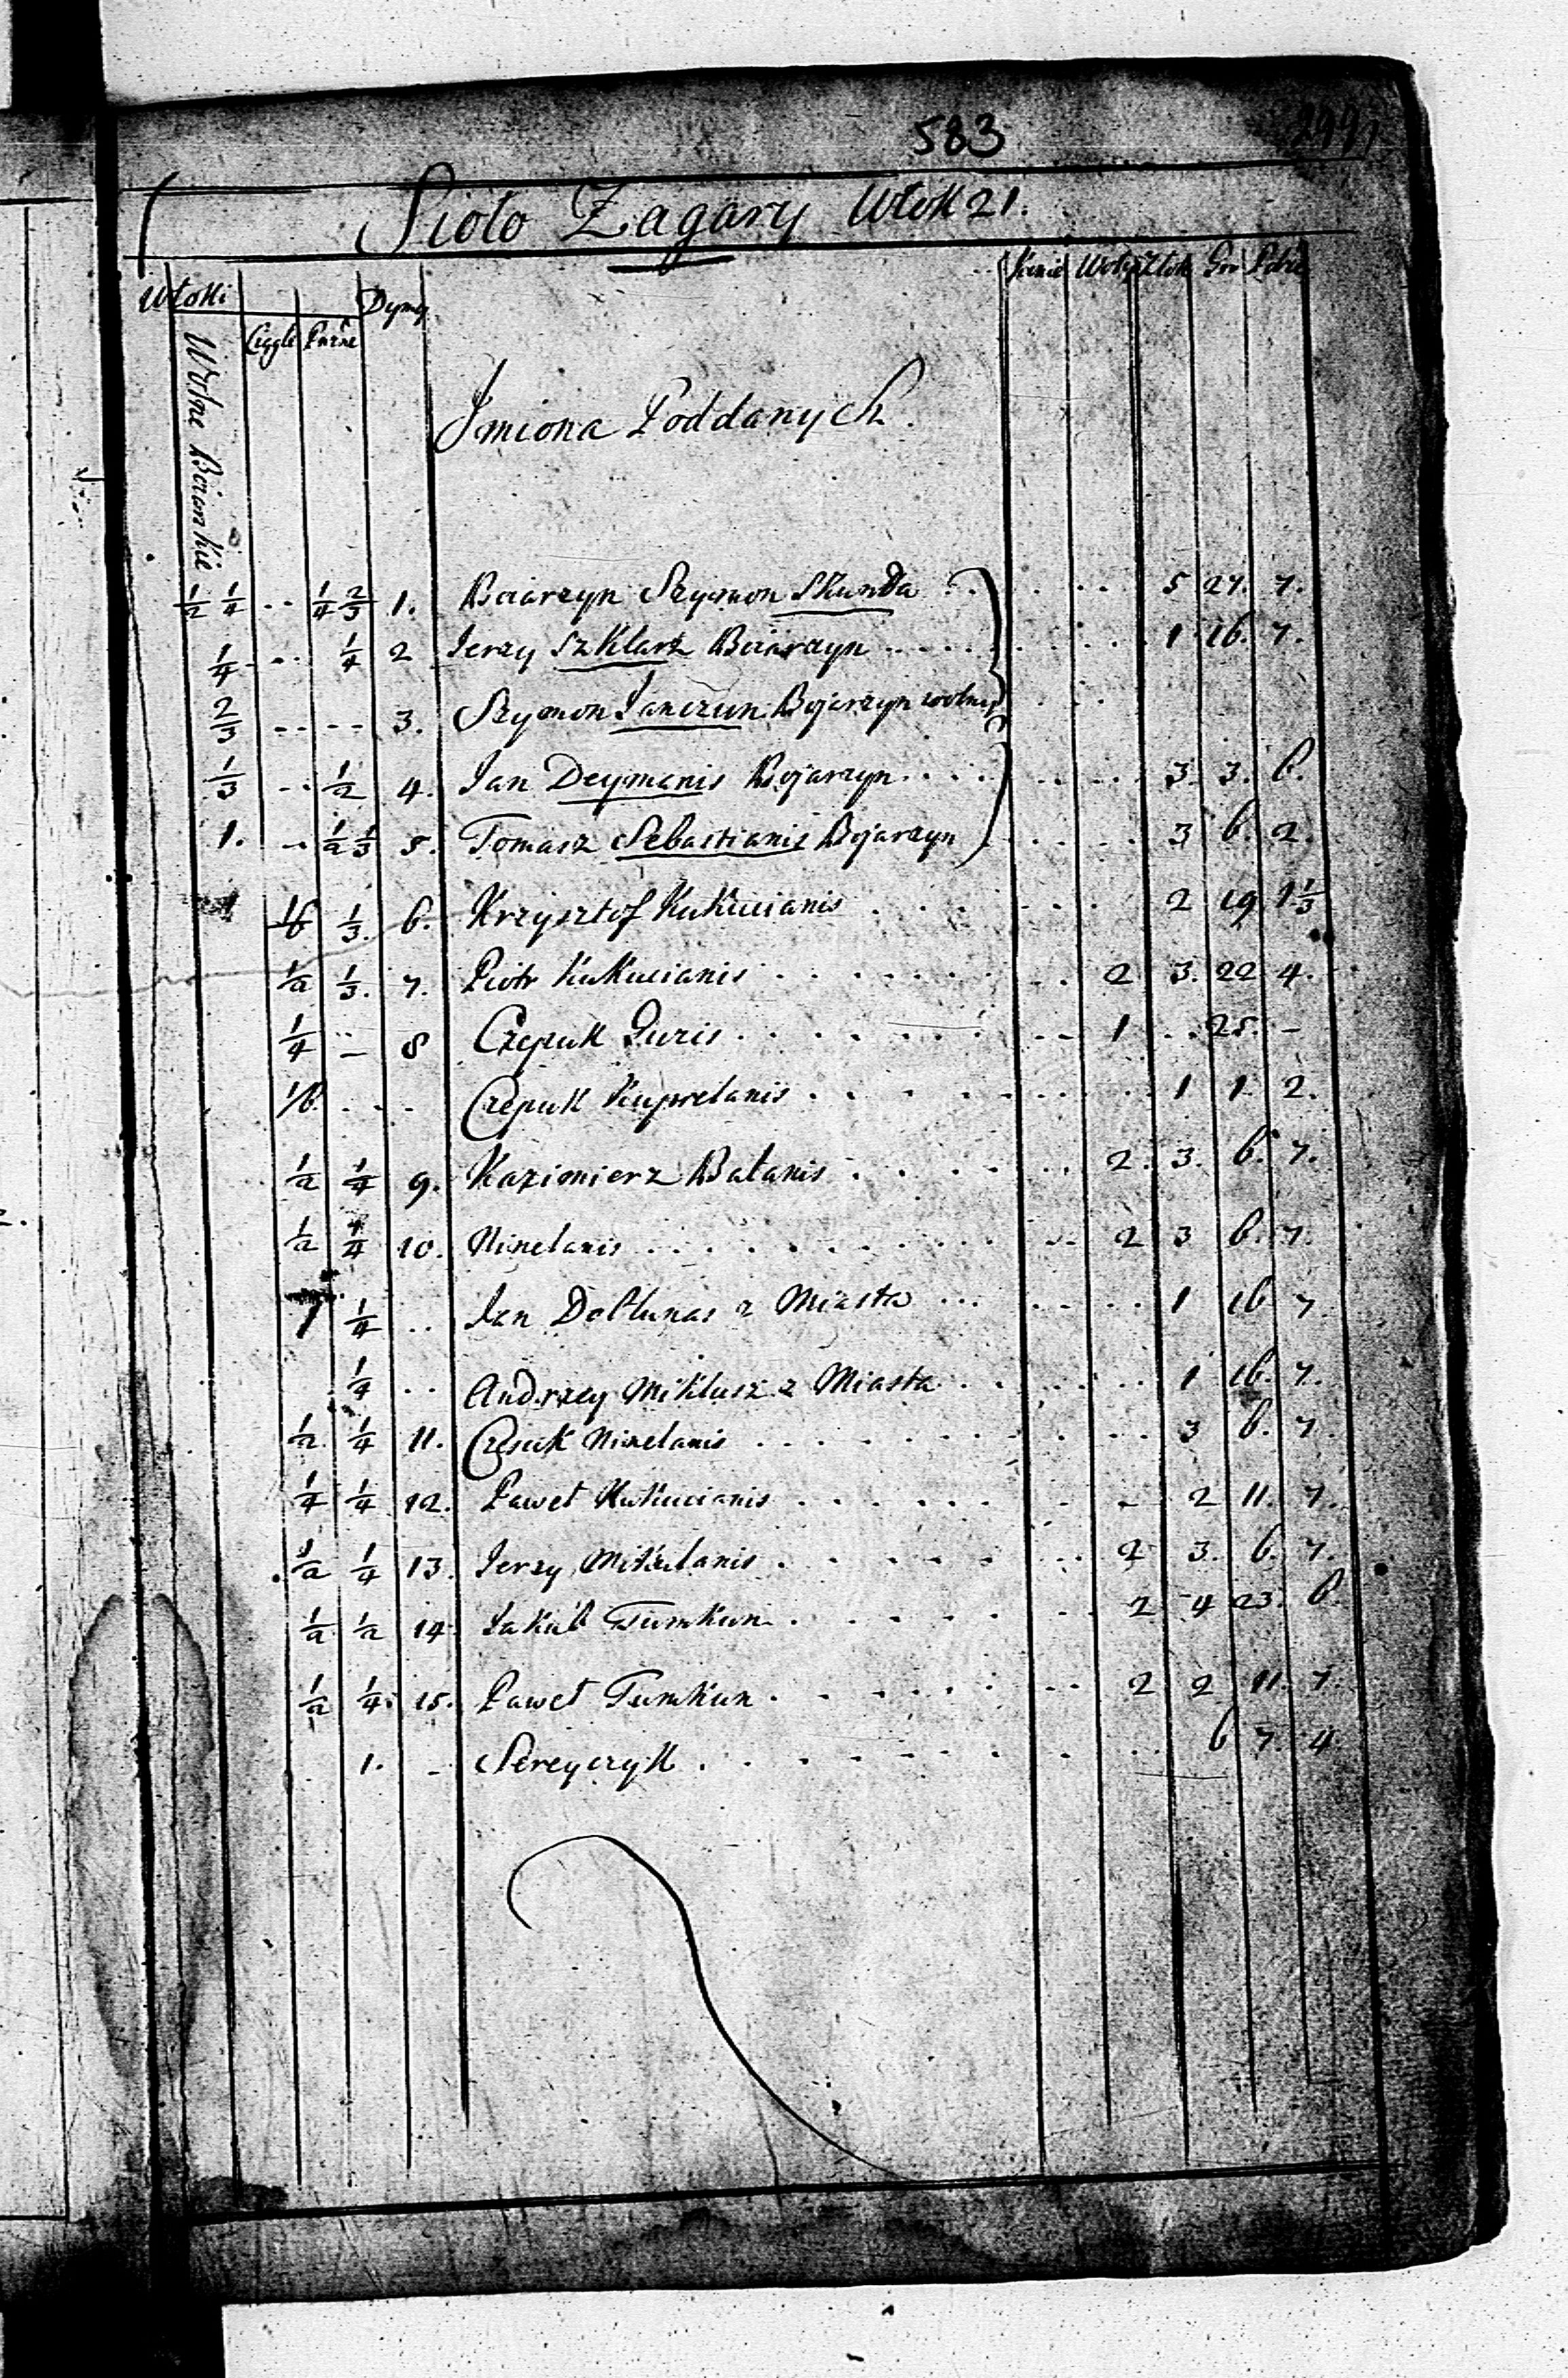 583
Sioło Zagary Włok 21.
Włoki Dymy Konie Woły Złote Gro Pobie
Ciągłe
Wolne Boiarskie
Jmiona Poddanych.
1/2 1/4 .. 1/4 2/3 1. Boiarzyn Szymon Skunda . . . 5 27. 7.
1/4 .. 1/4 2 Jerzy Szklarz Boiarzyn . . . 1 16. 7.
2/3 .. .. 3. Szymon Janczun Bojarzyn wolny
1/3 .. 1/2 4. Jan Deymanis Bojarzyn . . . 3. 3. 6.
1. .. 1/2 1/3 5. Tomasz Sebastianis Bojarzyn . . . 3 6. 2.
1/6 1/3. 6. Krzysztof Kukucianis . . . 2 19 1 1/3
1/2 1/3. 7. Piotr Kukucianis . . . 2 3. 22 4.
1/4 .. 8 Czepuk Juris . . . 1 .. 25. -
1/6. . . . Czepuk Kuprelanis . . . 1 1 2.
1/2 1/4 9. Kazimierz Batanis . . . 2. 3. 6. 7.
1/2 1/4 10. Ninelanis . . . 2 3 6. 7.
1/4 .. Jan z Miasta . . . 1 16 7
1/4 .. Andrzey Miklusz z Miasta . . . 1 16. 7.
1/2 1/4 11. Ninelanis . . . 3 6. 7
1/4 1/4 12. Paweł Kukucianis . . . 2 11. 7.
1/2 1/4 13. Jerzy Mikulanis . . . 2 3. 6. 7.
1/2 1/2 14. Jakub Tumkun . . . 2 4 23. 6.
1/2 1/4. 15. Paweł Tumkun . . . 2 2 11. 7.
1. - Sereyczyk . . . 6 7. 4